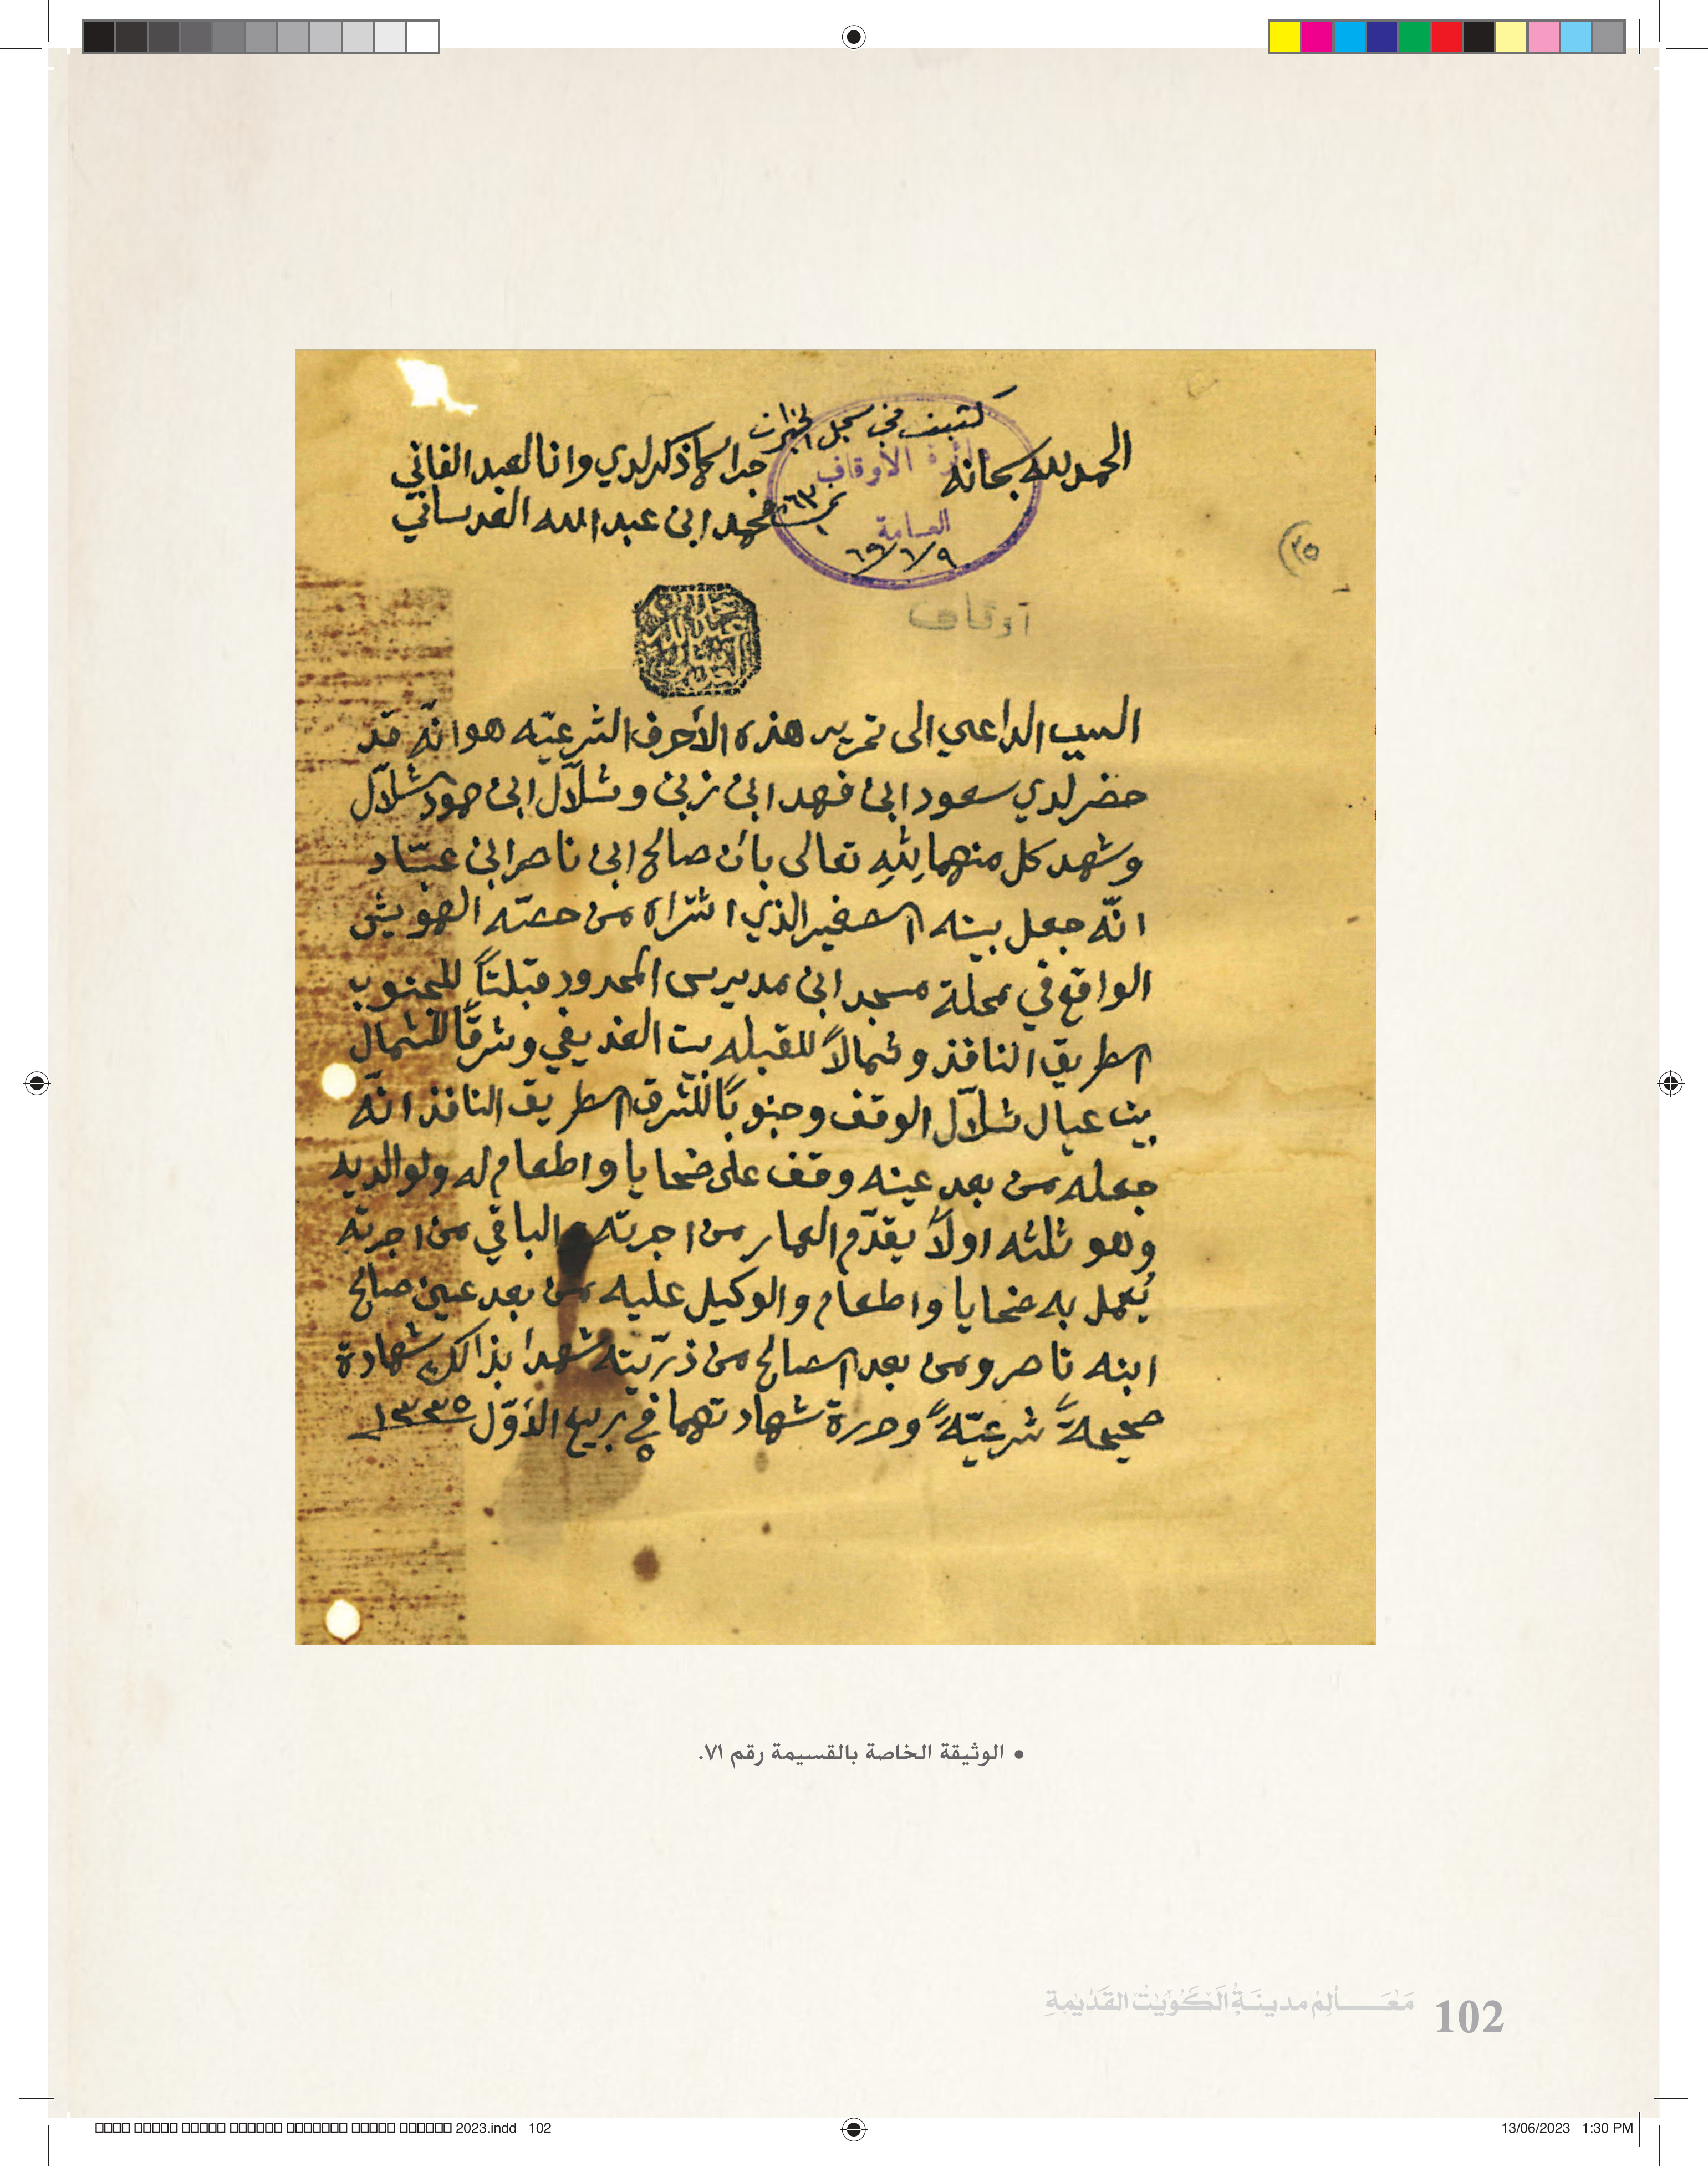 كتبت في سجل الخيرات
الحمد لله سبحانه
جرا كما ذكر لدي وانا العبد الفاني
محمد ابن عبدالله العدساني
دائرة الأوقاف
العامة
نمرة ٦٣
٥٦/٦/٩
(٢٥)
أوقاف
السبب الداعي الى تحرير هذه الأحرف الشرعيّه هو انّه قد
حضر لدي سعود ابن فهد ابن زبن وشلّال ابن حمود شلّال
وشهد كل منهما لله تعالى بأن صالح ابن ناصر ابن عبّاد
انّه جعل بيته الصغير الذي اشتراه من حصته الهويش
الواقع في محلة مسجد ابن مديرس المحدود قبلتاً للجنوب
الطريق النافذ وشمالاً للقبله بيت الغديفي وشرقاً للشمال
بيت عيال شلّال الوقف وجنوباً للشرق الطريق النافذ انّه
جعله من بعد عينه وقف على ضحايا واطعام له ولوالديه
وهو ثلثه اولاً يقدّم العمار من اجرته والباقي من اجرته
يُعمل به ضحايا واطعام والوكيل عليه من بعد عين صالح
ابنه ناصر ومن بعد الصالح من ذرّيته شهدا بذالك شهادة
صحيحةً شرعيّةً وحررة شهادتهما في ربيع الأوّل ١٣٣٥
• الوثيقة الخاصة بالقسيمة رقم ٧١.
مَعَـــالِمُ مدينَةِ الكُوَيْتِ القَدْيمةِ 102
2023.indd 102
13/06/2023 1:30 PM